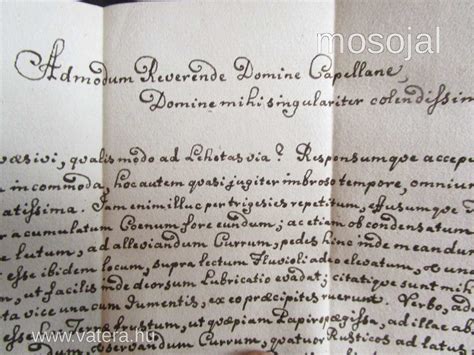 mosojal
Admodum Reverende Domine Capellane,
Domine mihi singulariter colendissim
væsivi, qualis modo ad Lehotas via? Responsumque accepe
incommoda, hoc autem quasi jugiter imbroso tempore, omniu
atissima. Jam enim illuc per trigesies repetitum, effusumque
racumulatum Coenum fore eundum; ac etiam ob condensatum
lutum, ad alleviandum Currum, pedes hinc inde meandu
esse ibidem locum, supra lectum Fluvioli adeo elevatum,
ut facilis inde deorsum Lubricatio evadat; citatique sunt mih
ta vice una cum Jumentis, ex eo præcipites ruerunt. Verbo, ad
frustum, ut quæpiam Papirispægissa, ad illac abe
dum, observandum Currum, quatuor Rusticos ad latus
www.vatera.hu